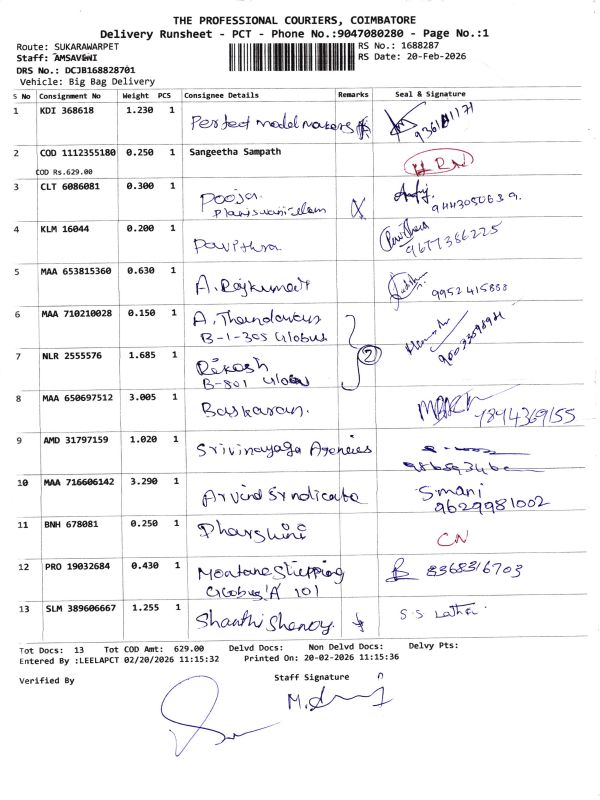 THE PROFESSIONAL COURIERS, COIMBATORE
Delivery Runsheet - PCT - Phone No.:9047080280 - Page No.:1
Route: SUKARAWARPET
RS No.: 1688287
Staff: AMSAVEWI
RS Date: 20-Feb-2026
DRS No.: DCJB168828701
Vehicle: Big Bag Delivery
S No Consignment No Weight PCS Consignee Details Remarks Seal & Signature
1 KDI 368618 1.230 1 Perfect model makers
2 COD 1112355180 0.250 1 Sangeetha Sampath
COD Rs.629.00
3 CLT 6086081 0.300 1 Pooja
4 KLM 16044 0.200 1 Pavithra 9677386225
5 MAA 653815360 0.630 1 A. Rajkumar 9952415888
6 MAA 710210028 0.150 1 A.
B-1-305 Globus
2
7 NLR 2555576 1.685 1 Rikesh
B-801 Globus
8 MAA 650697512 3.005 1 Baskaran. 7844369155
9 AMD 31797159 1.020 1 Srivinayaga Agencies
10 MAA 716606142 3.290 1 Arvind Syndicate Smani
9629981002
11 BNH 678081 0.250 1 Dharshini CN
12 PRO 19032684 0.430 1 Montane Shipping 8368316703
Globus 'A' 101
13 SLM 389606667 1.255 1 Shanthi Shenoy. S.S Latha
Tot Docs: 13 Tot COD Amt: 629.00 Delvd Docs: Non Delvd Docs: Delvy Pts:
Entered By :LEELAPCT 02/20/2026 11:15:32 Printed On: 20-02-2026 11:15:36
Verified By
Staff Signature